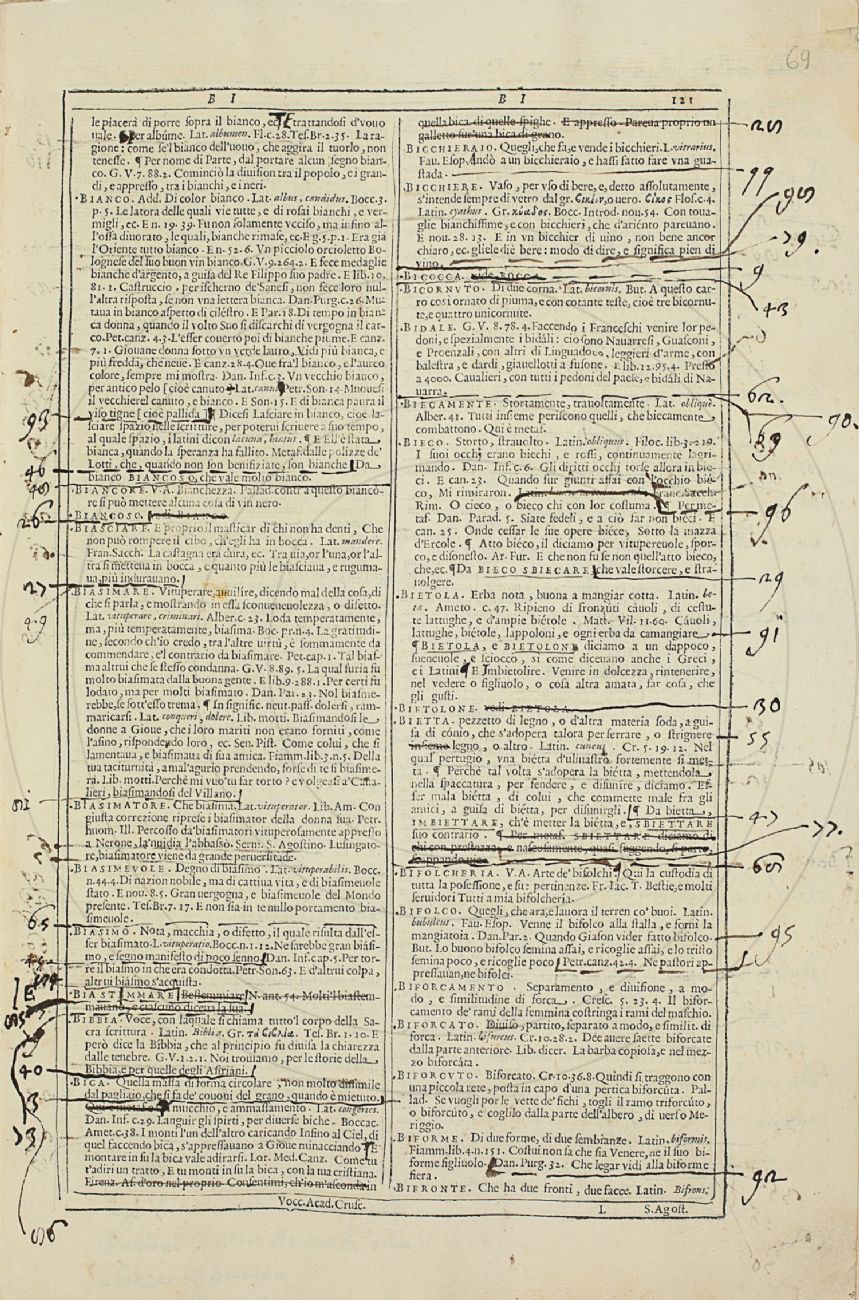 69
B I
B I 121
le piacerà di porre sopra il bianco, ec. E trattandosi d'vouo
uale. Per albúme. Lat. albumen. Fl.c.28. Tes.Br.2.35. La ra-
gione: come se'l bianco dell'uouo, che aggira il tuorlo, non
tenesse. ¶ Per nome di Parte, dal portare alcun segno bian-
co. G. V. 7. 88. 2. Cominciò la diuision tra il popolo, e i gran-
di, e appresso, tra i bianchi, e i neri.
BIANCO. Add. Di color bianco. Lat. albus, candidus. Bocc.3.
p. 5. Le latora delle quali vie tutte, e di rosai bianchi, e ver-
migli, ec. E n. 19. 39. Fu non solamente vcciso, ma infino al-
l'ossa diuorato, le quali, bianche rimase, ec. E g.5.p.1. Era già
l'Oriente tutto bianco. E n. 52. 6. Vn picciolo orcioletto Bo-
lognese del suo buon vin bianco. G.V.9.264.2. E fece medaglie
bianche d'argento, a guisa del Re Filippo suo padre. E lib.10.
81. 1. Castruccio, per ischerno de' Sanesi, non fece loro nul-
l'altra risposta, se non vna lettera bianca. Dan. Purg.c.26. Mu-
taua in bianco aspetto di cilestro. E Par.18. Di tempo in bian-
ca donna, quando il volto Suo si discarchi di vergogna il car-
co. Pet.canz. 4.3. L'esser couerto poi di bianche piume. E canz.
7. 1. Giouane donna sotto vn verde lauro, Vidi più bianca, e
più fredda, che neue. E canz. 28.4. Que fra'l bianco, e l'aureo
colore, sempre mi mostra. Dan. Inf.c.3. Vn vecchio bianco,
per antico pelo [cioè canuto Lat. canus Petr. Son. 14. Muouesi
il vecchierel canuto, e bianco. E Son. 15. E di bianca paura il
viso tigne [cioè pallida ¶ Dicesi Lasciare in bianco, cioè la-
sciare spazio nelle scritture, per poterui scriuere a suo tempo,
al quale spazio, i latini dicon lacuna, hiatus. ¶ E Ell'è stata
bianca, quando la speranza ha fallito. Metaf. dalle polizze de'
Lotti, che, quando non son benifiziate, son bianche. Da
bianco BIANCOSO, che vale molto bianco.
BIANCORE. V. A. Bianchezza. Pallad. contr'a questo bianco-
re si può mettere alcuna cosa di vin nero.
BIANCOSO.
BIASCIARE. E proprio il masticar di chi non ha denti, Che
non può rompere il cibo, ch'egli ha in bocca. Lat. mandere.
Fran. Sacch. La castagna era dura, ec. Tra ùia, or l'una, or l'al-
tra si metteua in bocca, e quanto più le biasciaua, e ruguma-
ua, più indurauano.
BIASIMARE. Vituperare, auuilire, dicendo mal della cosa, di
che si parla, e mostrando in essa sconueneuolezza, o difetto.
Lat. vituperare, criminari. Alber.c.23. Loda temperatamente,
ma, più temperatamente, biasima. Boc. pr.n.4. La gratitudi-
ne, secondo ch'io credo, tra l'altre uirtù, è sommamente da
commendare, e'l contrario da biasimare. Pet.cap.1. Tal biasi-
ma altrui che se stesso condanna. G.V.8.89.5. La qual furia fu
molto biasimata dalla buona gente. E lib.9.288.1. Per certi fu
lodato, ma per molti biasimato. Dan. Par. 23. Nol biasme-
rebbe, se sott'esso trema. ¶ In signific. neut. pass. dolersi, ram-
maricarsi. Lat. conqueri, dolere. Lib. motti. Biasimandosi le
donne a Gioue, che i loro mariti non erano forniti, come
l'asino, rispondendo loro, ec. Sen. Pist. Come colui, che si
lamentaua, e biasimaua di sua amica. Fiamm.lib.3.n.5. Della
tua tacitunità, a mal'agurio prendendo, forse di te si biasime-
rà. Lib. motti. Perchè mi vuo'tu far torto? e volgeasi a' Caua-
lieri, biasimandosi del Villano.
BIASIMATORE. Che biasima. Lat. vituperator. Lib. Am. Con
giusta correzione riprese i biasimator della donna sua. Petr.
huom. Ill. Percosso da' biasimatori vituperosamente appresso
a Nerone, la'nuidia l'abbassò. Serm. S. Agostino. Lusingato-
re, biasimatore viene da grande peruersitade.
BIASIMEVOLE. Degno di biasimo. Lat. vituperabilis. Bocc.
n.44.4. Di nazion nobile, ma di cattiua vita, e di biasimeuole
stato. E nou. 8. 5. Gran uergogna, e biasimeuole del Mondo
presente. Tes. Br. 7. 17. E non sia in te nullo portamento bia-
simeuole.
BIASIMO. Nota, macchia, o difetto, il quale risulta dall'es-
ser biasimato. L. vituperatio. Bocc.n.1.12. Ne sarebbe gran biasi-
mo, e segno manifesto di poco senno. Dan. Inf. cap.5. Per tor-
re il biasmo in che era condotta. Petr. Son. 63. E d'altrui colpa,
altrui biasimo s'acquista.
BIASTEMMARE. Bestemmiare. N. ant. 54. Molti'l biastem-
mauano, e ciascuno diceua la sua.
BIBBIA. Voce, con laquale si chiama tutto'l corpo della Sa-
cra scrittura. Latin. Biblia. Gr. τὰ βιβλία. Tes. Br. 1. 10. E
però dice la Bibbia, che al principio fu diuisa la chiarezza
dalle tenebre. G.V.1.2.1. Noi trouiamo, per le storie della
Bibbia, e per quelle degli Assiriani.
BICA. Quella massa di forma circolare, non molto dissimile
dal pagliaio, che si fa de' couoni del grano, quando è mietuto.
mucchio, e ammassamento. Lat. congeries.
Dan. Inf. c.29. Languir gli spirti, per diuerse biche. Boccac.
Amet.c.38. I monti l'un dell'altro caricando Infino al Ciel, di
quel faccendo bica, s'appressauano a Gioue minacciando E
montare in su la bica vale adirarsi. Lor. Med. Canz. Come tu
t'adiri un tratto, E tu monti in su la bica, con la tua cristiana.
Firenz. As. d'oro nel proprio Consentimi, ch'io m'asconda in
Vocc. Acad. Crusc.
quella bica di quelle spighe. E appresso. Pareua proprio un
galletto sur'una bica di grano.
BICCHIERAIO. Quegli, che fa, e vende i bicchieri. L. vitrarius.
Fau. Esop. Andò a un bicchieraio, e hassi fatto fare vna gua-
stada.
BICCHIERE. Vaso, per vso di bere, e, detto assolutamente,
s'intende sempre di vetro dal gr. βίκιον, ouero. βῖκος Flos.c.4.
Latin. cyathus. Gr. κύαθος. Bocc. Introd. nou.54. Con toua-
glie bianchissime, e con bicchieri, che d'ariento pareuano.
E nou. 28. 13. E in vn bicchier di uino, non bene ancor
chiaro, ec. gliele diè bere: modo di dire, e significa pien di
vino.
BICOCCA. vide ROCCA.
BICORNVTO. Di due corna. Lat. bicornis. But. A questo car-
ro così ornato di piuma, e con cotante teste, cioè tre bicornu-
te, e quattro unicornute.
BIDALE. G. V. 8.78.4. Faccendo i Franceschi venire lor pe-
doni, e spezialmente i bidáli: cio sono Nauarresi, Guasconi,
e Proenzali, con altri di Linguadoco, leggieri d'arme, con
balestra, e dardi, giauellotti a fusone. E lib.12.95.4. Presso
a 4000. Caualieri, con tutti i pedoni del paese, e bidáli di Na-
uarra.
BIECAMENTE. Stortamente, trauoltamente. Lat. oblique.
Alber. 41. Tutti insieme periscono quelli, che biecamente
combattono. Qui è metaf.
BIECO. Storto, strauolto. Latin. obliquus. Filoc. lib.3.219.
I suoi occhj erano biechi, e rossi, continuamente lagri-
mando. Dan. Inf. c.6. Gli diritti occhj torse allora in bie-
ci. E can. 23. Quando fur giunti assai con l'occhio bié-
co, Mi rimiraron. Franc. Sacch.
Rim. O cieco, o bieco chi con lor costuma. ¶ Per me-
taf. Dan. Parad. 5. Siate fedeli, e a ciò far non bieci. E
can. 25. Onde cessar le sue opere biéce, Sotto la mazza
d'Ercole. ¶ Atto biéco, il diciamo per vitupereuole, spor-
co, e disonesto. Ar. Fur. E che non fu se non quell'atto bieco,
che, ec. ¶ Da BIECO SBIECARE, che vale storcere, e stra-
uolgere.
BIETOLA. Erba nota, buona a mangiar cotta. Latin. be-
ta. Ameto. c.47. Ripieno di fronzuti cáuoli, di cestu-
te lattughe, e d'ampie biétole. Matt. Vil. 11.60. Cáuoli,
lattughe, biétole, lappoloni, e ogni erba da camangiare
¶ BIETOLA, e BIETOLONE diciamo a un dappoco,
sueneuole, e sciocco, sì come diceuano anche i Greci, e
i Latini ¶ E Imbietolire. Venire in dolcezza, rintenerire,
nel vedere o figliuolo, o cosa altra amata, far cosa, che
gli gusti.
BIETOLONE. vedi BIETOLA.
BIETTA. pezzetto di legno, o d'altra materia soda, a gui-
sa di cónio, che s'adopera talora per serrare, o strignere
insieme legno, o altro. Latin. cuneus. Cr. 5. 19. 12. Nel
qual pertugio, vna biétta d'uliuastro fortemente si met-
ta. ¶ Perchè tal volta s'adopera la biétta, mettendola
nella spaccatura, per fendere, e disunire, diciamo. Es-
ser mala biétta, di colui, che commette male fra gli
amici, a guisa di biétta, per disunirgli. ¶ Da bietta,
IMBIETTARE, ch'é metter la biétta, e, SBIETTARE
suo contrario. ¶ Per metaf. SBIETTARE diciamo di
chi con prestezza, e nascosamente, quasi fuggendo, si parte,
BIFOLCHERIA. V.A. Arte de' bifolchi ¶ Qui la custodia di
tutta la posessione, e sue pertinenze. Fr. Iac. T. Bestie, e molti
seruidori Tutti a mia bifolcheria.
BIFOLCO. Quegli, che ara, e lauora il terren co' buoi. Latin.
bubulcus. Fau. Esop. Venne il bifolco alla stalla, e fornì la
mangiatoia. Dan. Par. 2. Quando Giason vider fatto bifolco.
But. Lo buono bifolco semina assai, e ricoglie assai, e lo tristo
semina poco, e ricoglie poco. Petr. canz.42.4. Ne pastori ap-
pressauan, ne bifolci.
BIFORCAMENTO. Separamento, e diuisione, a mo-
do, e similitudine di forca. Cresc. 5. 23. 4. Il bifor-
camento de' rami della femmina costringa i rami del maschio.
BIFORCATO. Diuiso, partito, separato a modo, e similit. di
forca. Latin. bifurcus. Cr.10.28.2. Dée auere saette biforcate
dalla parte anteriore. Lib. dicer. La barba copiosa, e nel mez-
zo biforcáta.
BIFORCVTO. Biforcato. Cr.10.36.8. Quindi si traggono con
una piccola rete, posta in capo d'una pertica biforcúta. Pal-
lad. Se vuogli por le vette de' fichi, togli il ramo triforcúto,
o biforcúto, e coglilo dalla parte dell'albero, di uerso Me-
riggio.
BIFORME. Di due forme, di due sembranze. Latin. biformis.
Fiamm.lib.4.n.151. Costui non sa che sia Venere, ne il suo bi-
forme figliuolo. Dan. Purg. 32. Che legar vidi alla biforme
fiera.
BIFRONTE. Che ha due fronti, due facce. Latin. Bifrons.
L S. Agost.
93
46
262
27
65
40
3
73
25
99
95
79.
9
43
62.
90.
96
29
91
30
55
47
77.
65
95
92